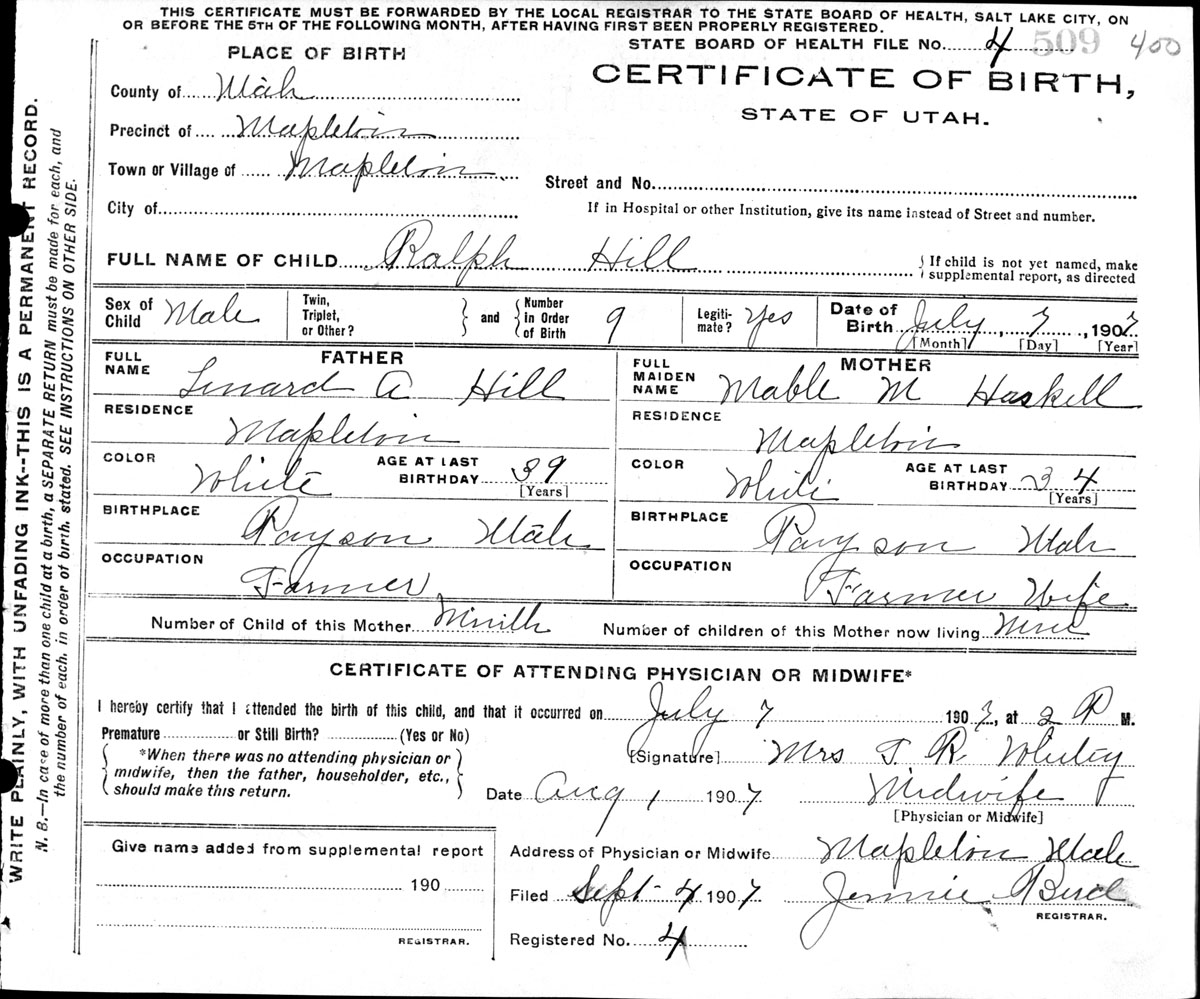 THIS CERTIFICATE MUST BE FORWARDED BY THE LOCAL REGISTRAR TO THE STATE BOARD OF HEALTH, SALT LAKE CITY, ON
OR BEFORE THE 5TH OF THE FOLLOWING MONTH, AFTER HAVING FIRST BEEN PROPERLY REGISTERED.
STATE BOARD OF HEALTH FILE No. 4 509 400
PLACE OF BIRTH
CERTIFICATE OF BIRTH,
STATE OF UTAH.
County of Utah
Precinct of Mapleton
Town or Village of Mapleton
Street and No.
City of
If in Hospital or other Institution, give its name instead of Street and number.
FULL NAME OF CHILD Ralph Hill
{ If child is not yet named, make
supplemental report, as directed
Sex of Child Male
Twin, Triplet, or Other? } and { Number in Order of Birth 9
Legiti-mate? Yes
Date of Birth July, 7, 1907
[Month] [Day] [Year]
FATHER
FULL NAME
A Hill
RESIDENCE
Mapleton
COLOR
White
AGE AT LAST BIRTHDAY 39
[Years]
BIRTHPLACE
Payson Utah
OCCUPATION
Farmer
MOTHER
FULL MAIDEN NAME Mable M Haskell
RESIDENCE
Mapleton
COLOR
White
AGE AT LAST BIRTHDAY 34
[Years]
BIRTHPLACE
Payson Utah
OCCUPATION
Farmer Wife
Number of Child of this Mother
Number of children of this Mother now living
CERTIFICATE OF ATTENDING PHYSICIAN OR MIDWIFE*
I hereby certify that I attended the birth of this child, and that it occurred on July 7 1907, at 2 P M.
Premature or Still Birth? (Yes or No)
{ *When there was no attending physician or
midwife, then the father, householder, etc.,
should make this return. }
[Signature] Mrs T. R.
Date Aug 1 1907
Midwife
[Physician or Midwife]
Give name added from supplemental report
190
REGISTRAR.
Address of Physician or Midwife Mapleton Utah
Filed Sept 4 1907 Jennie Bird
REGISTRAR.
Registered No. 4
WRITE PLAINLY, WITH UNFADING INK--THIS IS A PERMANENT RECORD.
N. B.—In case of more than one child at a birth, a SEPARATE RETURN must be made for each, and
the number of each, in order of birth, stated. SEE INSTRUCTIONS ON OTHER SIDE.